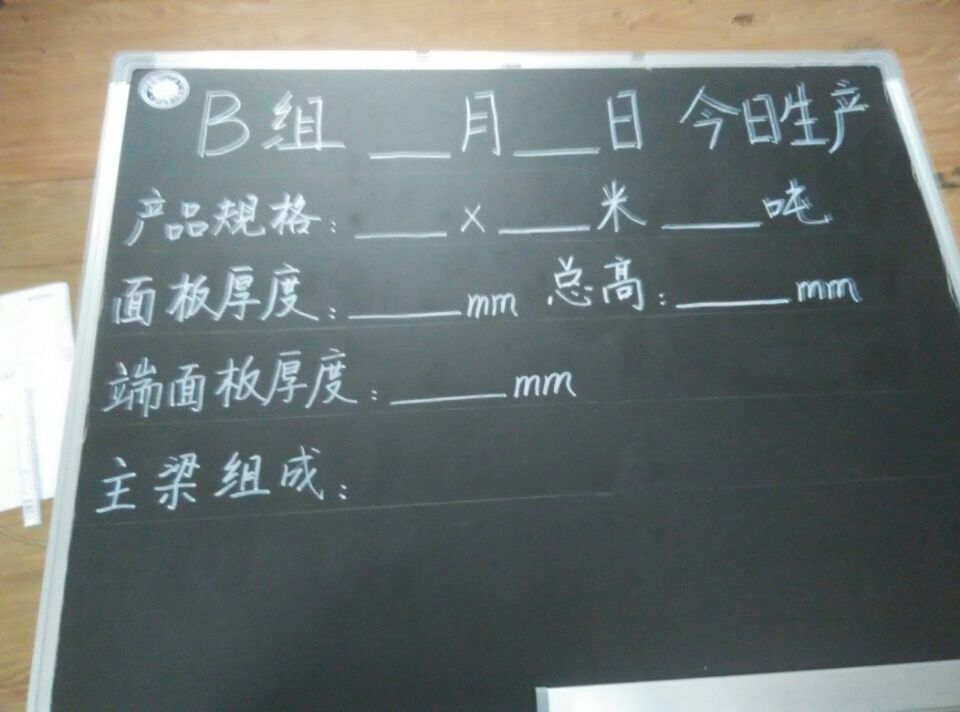 B组 ___月___日 今日生产
产品规格：___x___米 ___吨
面板厚度：___mm 总高：___mm
端面板厚度：___mm
主梁组成：